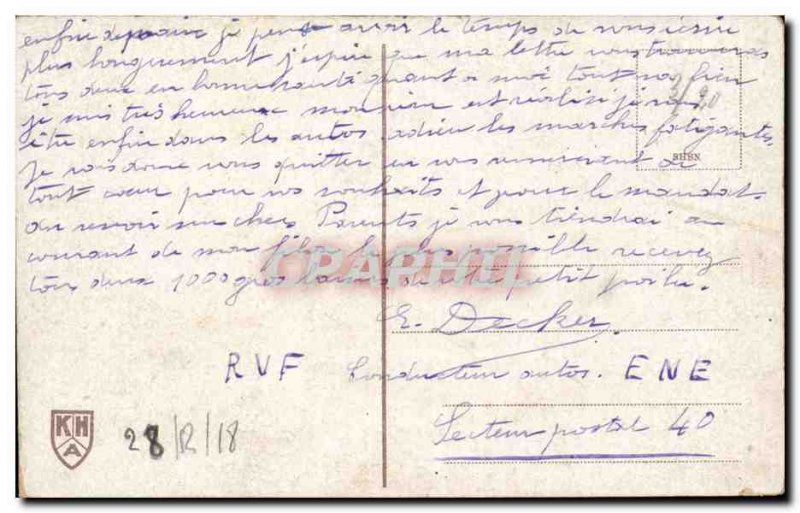 enfin demain je pense avoir le temps de vous écrire
plus longuement j'espère que ma lettre vous trouveras
tous deux en bonne santé quant a moi tout va bien
je suis très heureux mon rêve est réalisé je vais
être enfin dans les autos. adieu les marches fatigantes.
je vais donc vous quitter en vous remerciant de
tout cœur pour vos souhaits et pour le mandat
au revoir mes chers Parents je vous tiendrai au
courant de mon possible recevez
tous deux 1000 gros baisers de petit poilu.
E. Decker
RVF Conducteur autos. ENE
Secteur postal 40
28/12/18
3/20
RHBN
KHA
CPAPHIL